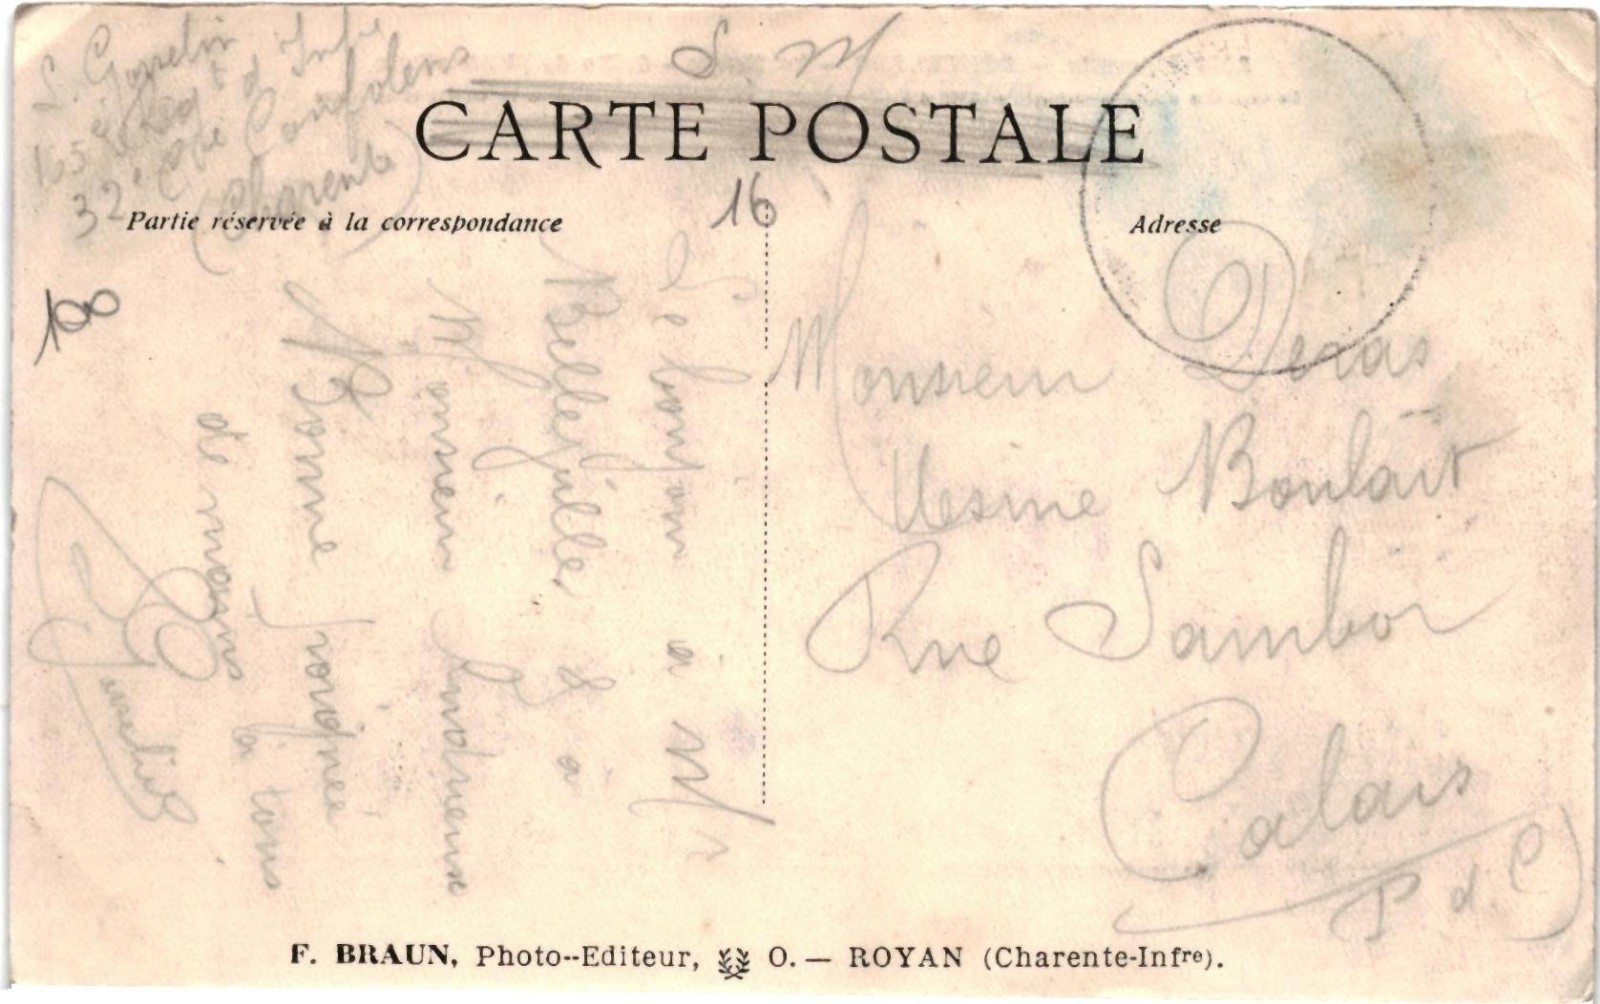 S. M
L. Gosselin
165e Regt d Infie
32e Cie Confolens
(Charente)
CARTE POSTALE
16
Partie réservée à la correspondance
Adresse
100
Le bonjour a Mr
Belleguille, & a
Monsieur
Bonne poignée
de mains à tous
Monsieur Deras
Usine Boulart
Rue Sambor
Calais
P d. C)
F. BRAUN, Photo--Editeur, O. — ROYAN (Charente-Infre).